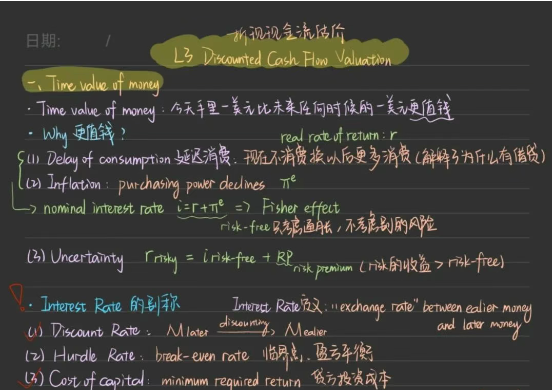 日期: /
折现现金流估价
L3 Discounted Cash Flow Valuation
一、Time value of money
· Time value of money: 今天手里一美元比未来任何时候的一美元更值钱
· Why 更值钱?
real rate of return: r
(1) Delay of consumption 延迟消费: 现在不消费换以后更多消费 (解释了为什么有借贷)
(2) Inflation: purchasing power declines πᵉ
→ nominal interest rate i=r+πᵉ => Fisher effect
risk-free 只考虑通胀, 不考虑别的风险
(3) Uncertainty r risky = i risk-free + RP risk premium (risk的收益 > risk-free)
! · Interest Rate 的别称 Interest Rate 定义: "exchange rate" between ealier money
and later money
(1) Discount Rate: M later discounting → M ealier
(2) Hurdle Rate: break-even rate 临界点, 盈亏平衡
(3) Cost of capital: minimum required return 投资成本